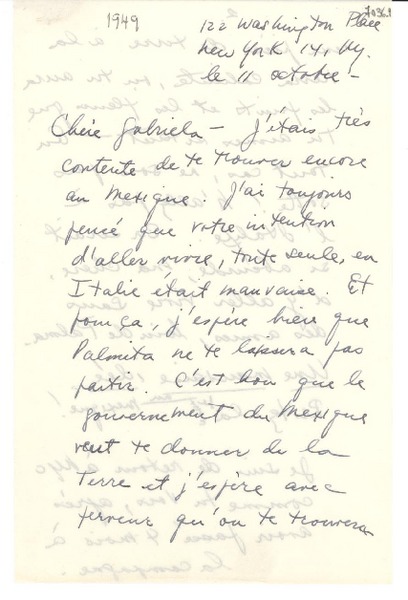 1949
122 Washington Place
New York 14, Ny.
le 11 octobre -
Chère Gabriela - J'étais très
contente de te trouver encore
au Mexique. J'ai toujours
pencé que votre intention
d'aller vivre, toute seule, en
Italie était mauvaise. Et
pour ça, j'espère bien que
Palmita ne te laissera pas
partir. C'est bon que le
gouvernement du Mexique
veut te donner de la
terre et j'espère avec
ferveur qu'on te trouvera